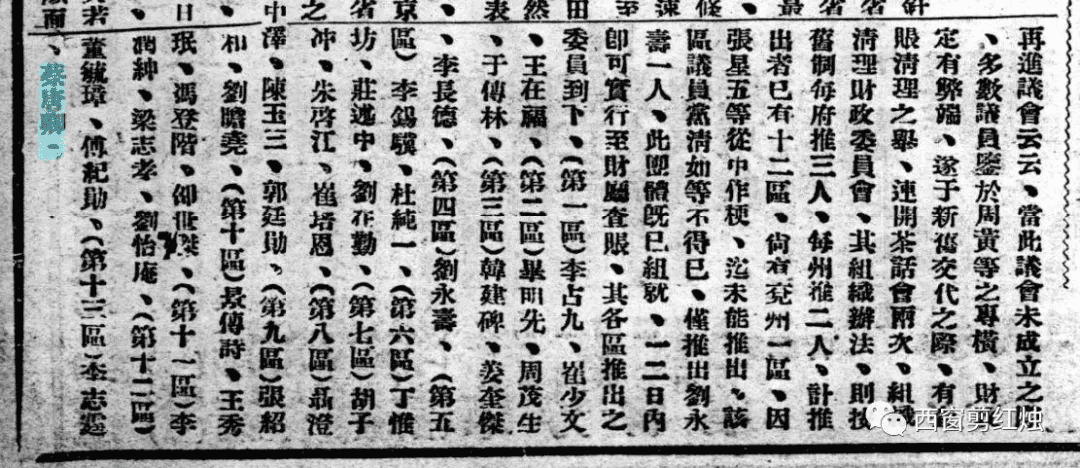 再進議會云云、當此議會未成立之
、多數議員鑒於周黃等之專橫、財
定有弊端、遂于新舊交代之際、有
賬清理之舉、連開茶話會兩次、組織
清理財政委員會、其組織辦法、則按
舊制每府推三人、每州推二人、計推
出者已有十二區、尙有兗州一區、因
張星五等從中作梗、迄未能推出、該
區議員黨清如等不得已、僅推出劉永
壽一人、此團體既已組就、一二日內
卽可實行至財廳查賬、其各區推出之
委員到下、(第一區)李占九、崔少文
、王在福、(第二區)畢明先、周茂生
、于傳林、(第三區)韓建碑、姜奎傑
、李長德、(第四區)劉永壽、(第五
區)李錫驥、杜純一、(第六區)丁惟
坊、莊遜中、劉在勤、(第七區)胡子
冲、朱啓江、崔培恩、(第八區)聶澄
澤、陳玉三、郭廷勛、(第九區)張紹
和、劉瞻堯、(第十區)景傳詩、王秀
珉、馮登階、邵世、(第十一區)李
潤紳、梁志孝、劉怡庵、(第十二區)
董毓璋、傅紀勛、(第十三區)李志
西窗剪红烛